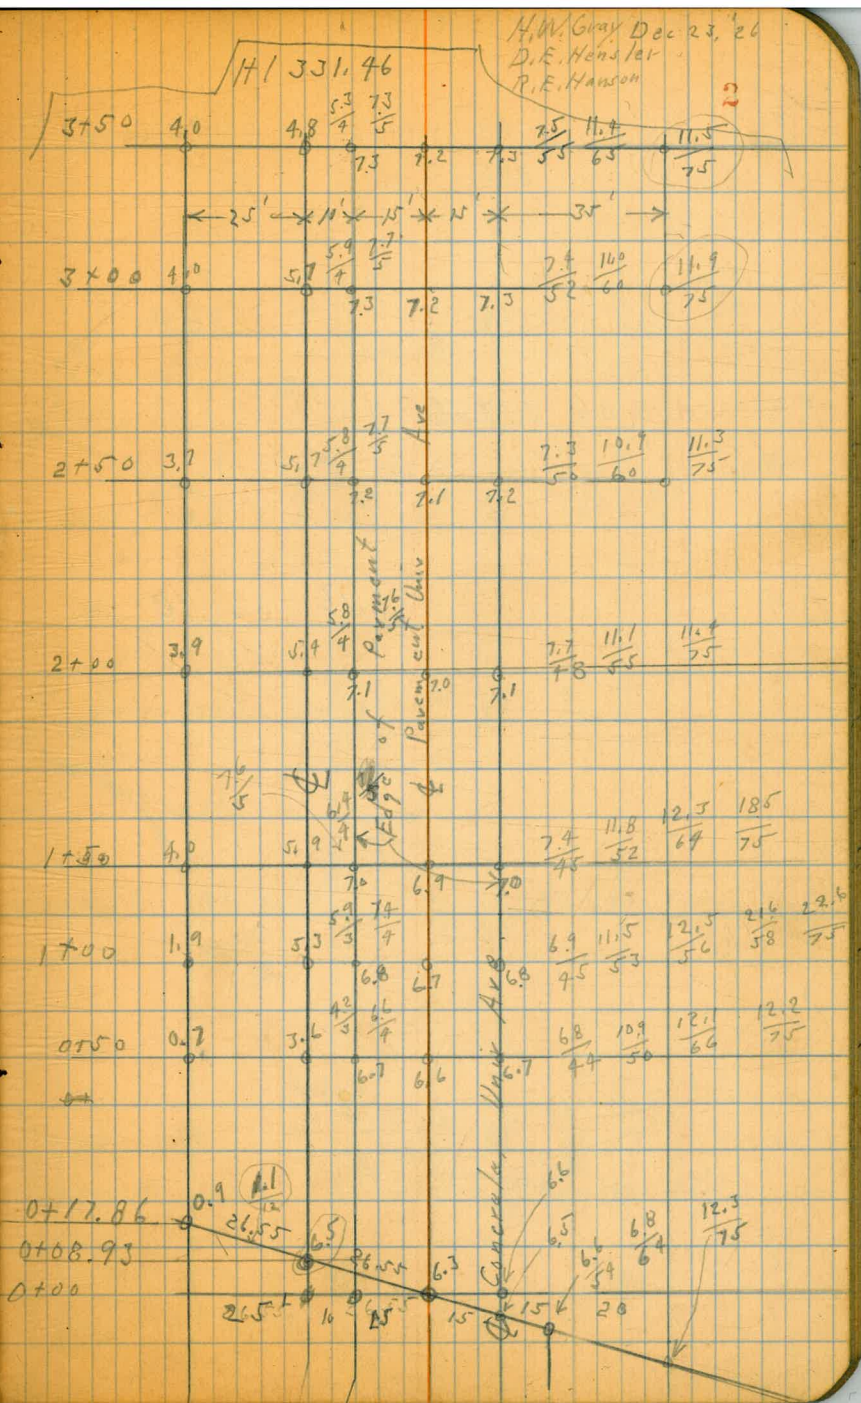 H.W. Gray Dec 23, '26
D.E. Hensler
R.E. Hanson
HI 331.46
3+50 4.0 4.8 5.3/4 7.3/5 7.3 7.2 7.3 7.5/55 11.4/65 11.5/75
25' 11' 15' 15' 35'
3+00 4.0 5.7 5.9/4 7.7/5 7.3 7.2 7.3 7.4/52 11.0/60 11.9/75
2+50 3.7 5.7 5.8/4 7.7/5 7.2 7.1 7.2 7.3/50 10.9/60 11.3/75
2+00 3.9 5.4 5.8/4 7.6/5 7.1 7.0 7.1 7.7/48 11.1/55 11.4/75
Edge of Pavment
℄ Pavement Univ Ave
7.6/5
1+50 4.0 5.9 6.4/4 7.0 6.9 7.0 7.4/45 11.8/52 12.3/64 18.5/75
1+00 1.9 5.3 5.9/3 7.4/4 6.8 6.7 6.8 6.9/45 11.5/53 12.5/56 21.6/58 22.6/75
0+50 0.7 3.6 4.2/3 6.6/4 6.7 6.6 6.7 6.8/44 10.9/50 12.1/66 12.2/75
0+
Univ Ave.
0+17.86 0.9 26.55 6.6 12.3/75
0+08.93 6.5 26.55 6.3 6.5 6.6/54 6.8/64
0+00 26.55 15 15 15 20